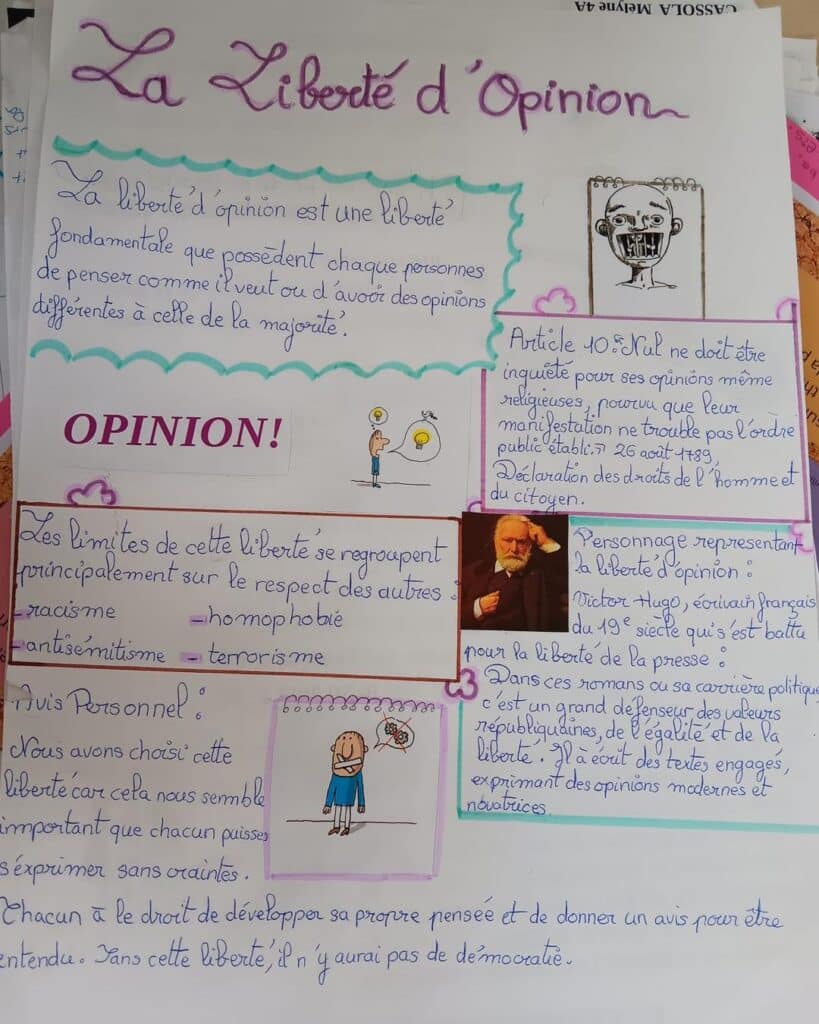 CASSOLA Melyne 4A
La Liberté d'Opinion
La liberté d'opinion est une liberté
fondamentale que possèdent chaque personnes
de penser comme il veut ou d'avoir des opinions
différentes à celle de la majorité.
Article 10 : « Nul ne doit être
inquiété pour ses opinions même
religieuses, pourvu que leur
manifestation ne trouble pas l'ordre
public établi. » 26 août 1789,
Déclaration des droits de l'homme et
du citoyen.
OPINION!
Les limites de cette liberté se regroupent
principalement sur le respect des autres :
-racisme -homophobie
-antisémitisme - terrorisme
Personnage representant
la liberté d'opinion :
Victor Hugo, écrivain français
du 19e siècle qui s'est battu
pour la liberté de la presse :
Dans ces romans ou sa carrière politique
c'est un grand défenseur des valeurs
républiquaines, de l'égalité et de la
liberté. Il à écrit des textes engagés,
exprimant des opinions modernes et
novatrices
Avis Personnel :
Nous avons choisi cette
liberté car cela nous semble
important que chacun puisses
s'éxprimer sans craintes.
Chacun à le droit de développer sa propre pensée et de donner un avis pour être
entendu. Sans cette liberté, il n'y aurai pas de démocratie.